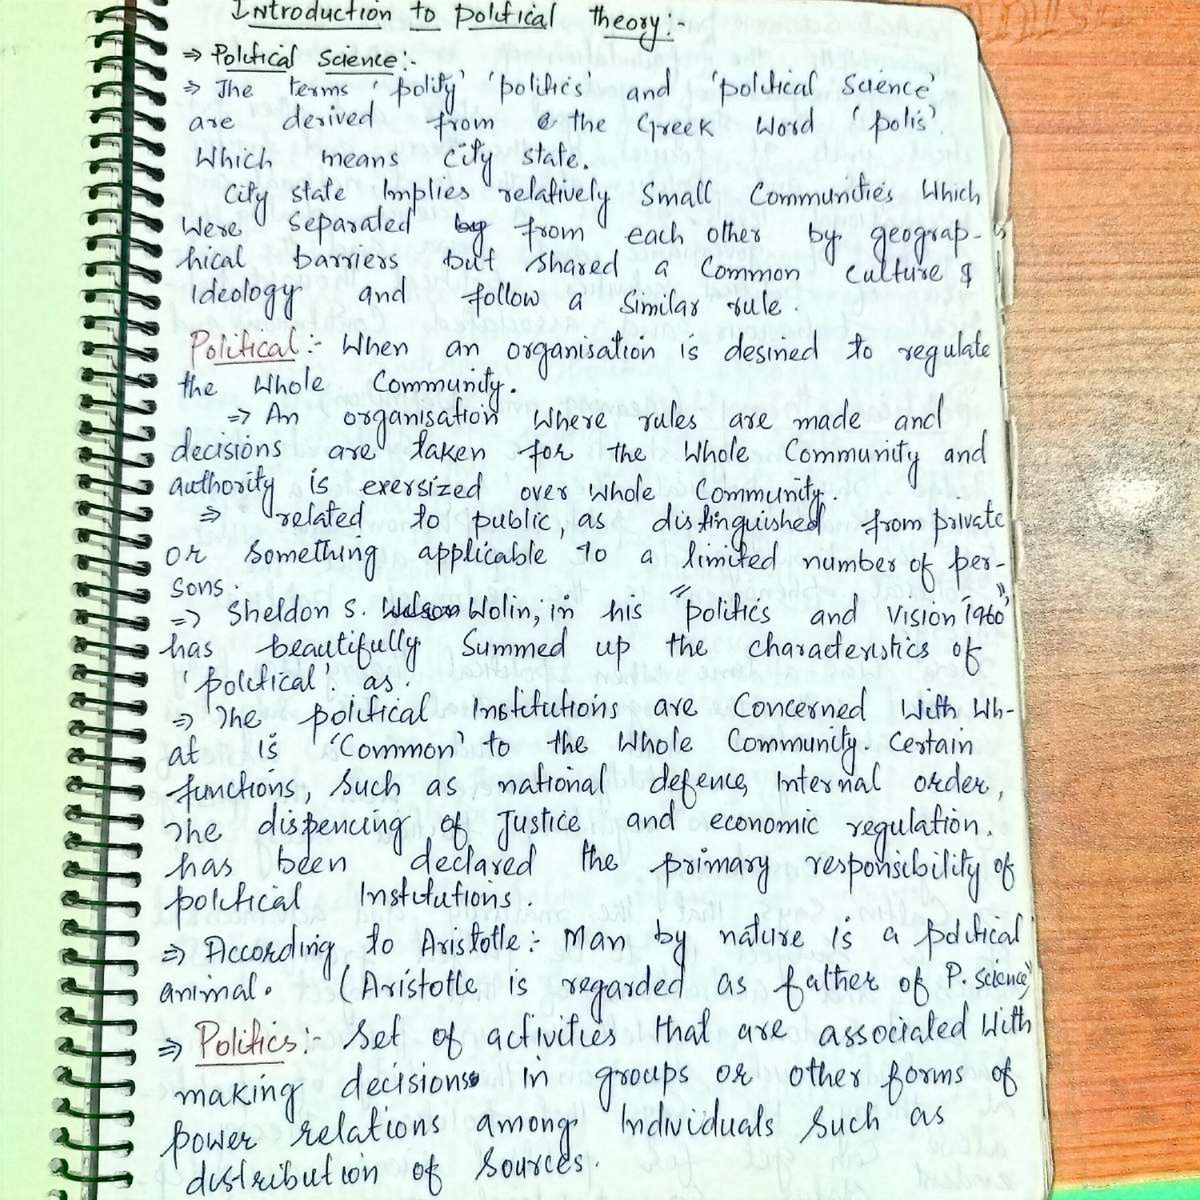 Introduction to political theory:-
⇒ Political Science:-
⇒ The terms 'polity' 'politics' and 'political Science'
are derived from the Greek Word 'polis'.
Which means City state.
City state Implies relatively Small Communities Which
Were separated from each other by geograp-
hical barriers but shared a Common Culture &
Ideology and follow a Similar rule.
Political:- When an organisation is desined to regulate
the Whole Community.
⇒ An organisation Where rules are made and
decisions are taken for the Whole Community and
authority is exersized over Whole Community.
⇒ related to public, as distinguished from private
or Something applicable to a limited number of per-
sons.
⇒ Sheldon S. Wolin, in his "politics and Vision 1960"
has beautifully Summed up the characteristics of
'political' as.
⇒ The political Institutions are Concerned With Wh-
at is 'Common' to the Whole Community. Certain
functions, Such as national defence, Internal order,
The dispencing of Justice and economic regulation.
has been declared the primary responsibility of
political Institutions.
⇒ According to Aristotle:- Man by nature is a political
animal. (Aristotle is regarded as father of P. Science)
⇒ Politics:- Set of activities that are associated With
making decisions in groups or other forms of
power relations among Individuals Such as
distribution of Sources.